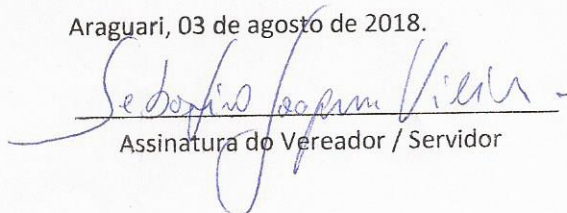 Araguari, 03 de agosto de 2018.
Sebastião Joaquim Vieira
Assinatura do Vereador / Servidor